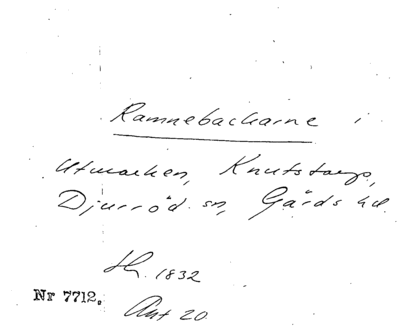 Ramnebackarne i
Utmarken, Knutstorp,
Djurröd sn, Gärds hd.
1832
Nr 7712.
Akt 20